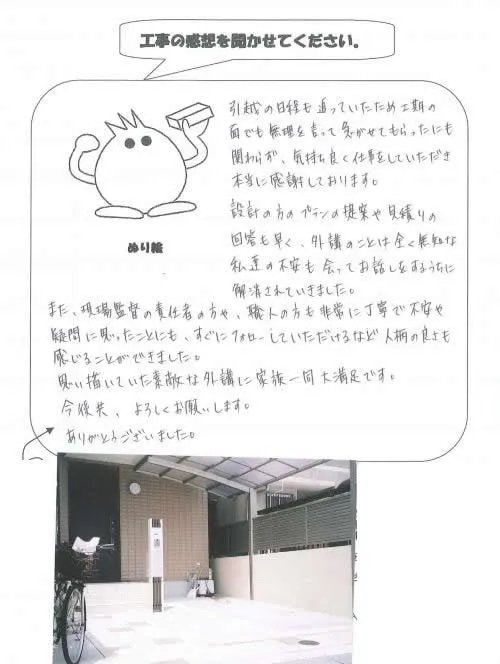 工事の感想を聞かせてください。
引越の日程も迫っていたため工期の
面でも無理を言って急がせてもらったにも
関わらず、気持ち良く仕事をしていただき
本当に感謝しております。
ぬり絵
設計の方のプランの提案や見積りの
回答も早く、外講のことは全く無知な
私達の不安も会ってお話しをするうちに
解消されていきました。
また、現場監督の責任者の方や、職人の方も非常に丁寧で不安や
疑問に思ったことにも、すぐにフォローしていただけるなど人柄の良さも
感じることができました。
思い描いていた素敵な外講に家族一同大満足です。
今後共、よろしくお願いします。
ありがとうございました。